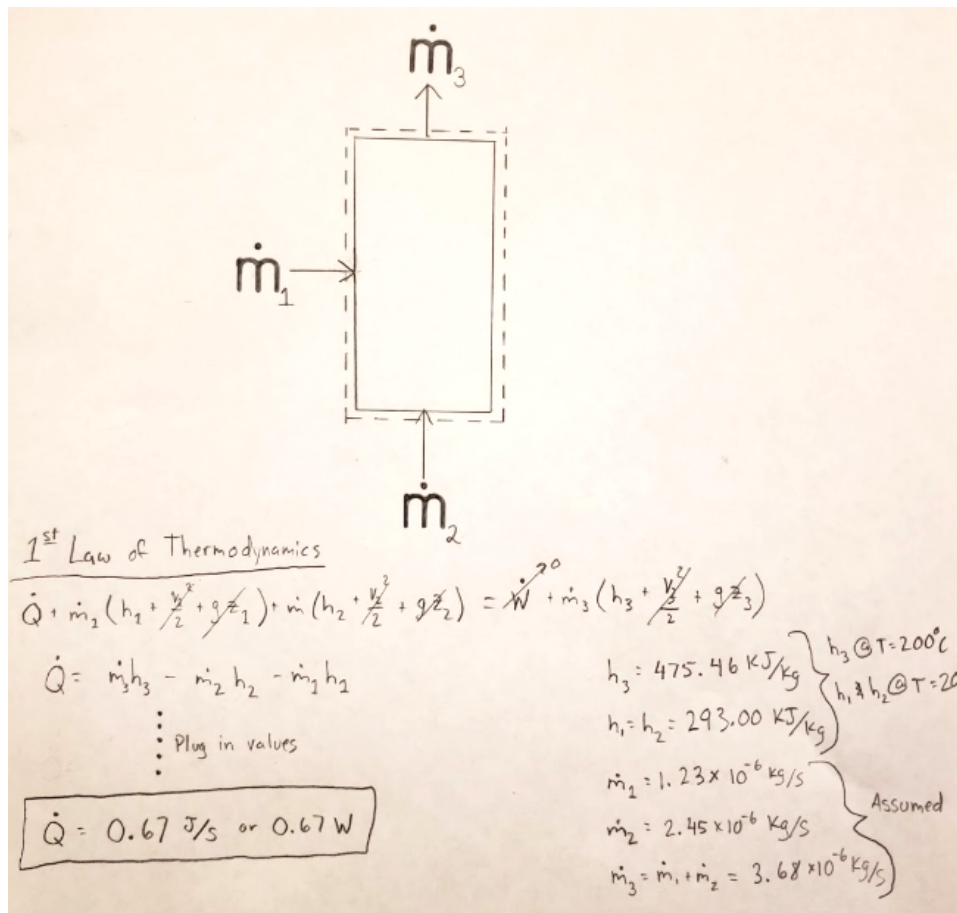 ṁ₃
ṁ₁
ṁ₂
1st Law of Thermodynamics
Q̇ + ṁ₁(h₁ + V₁²/2 + gz₁) + ṁ(h₂ + V₂²/2 + gz₂) = Ẇ→0 + ṁ₃(h₃ + V₃²/2 + gz₃)
Q̇ = ṁ₃h₃ - ṁ₂h₂ - ṁ₁h₁
Plug in values
Q̇ = 0.67 J/s or 0.67 W
h₃ = 475.46 KJ/kg
h₁ = h₂ = 293.00 KJ/kg
h₃ @ T=200°C
h₁ & h₂ @ T=20
ṁ₁ = 1.23 x 10⁻⁶ kg/s
ṁ₂ = 2.45 x 10⁻⁶ kg/s
ṁ₃ = ṁ₁ + ṁ₂ = 3.68 x 10⁻⁶ kg/s
Assumed